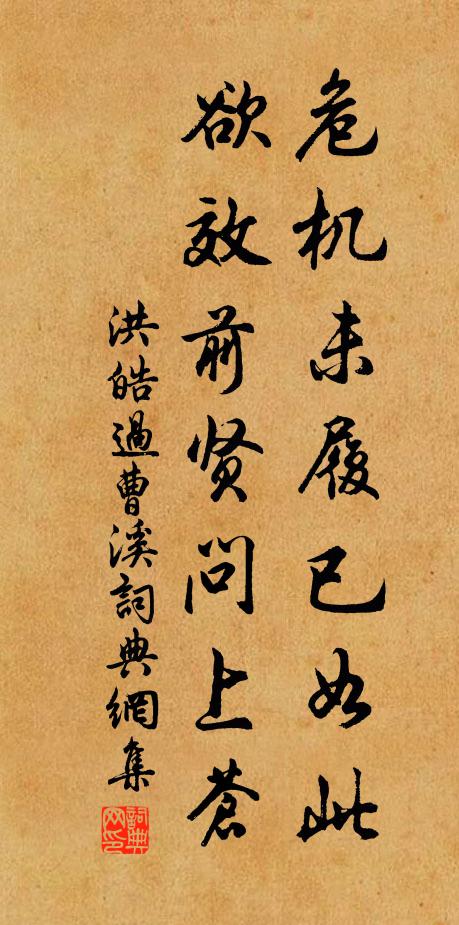 危机未履已如此
欲效前贤问上苍
洪皓過曹溪詞典網集
詞典网印